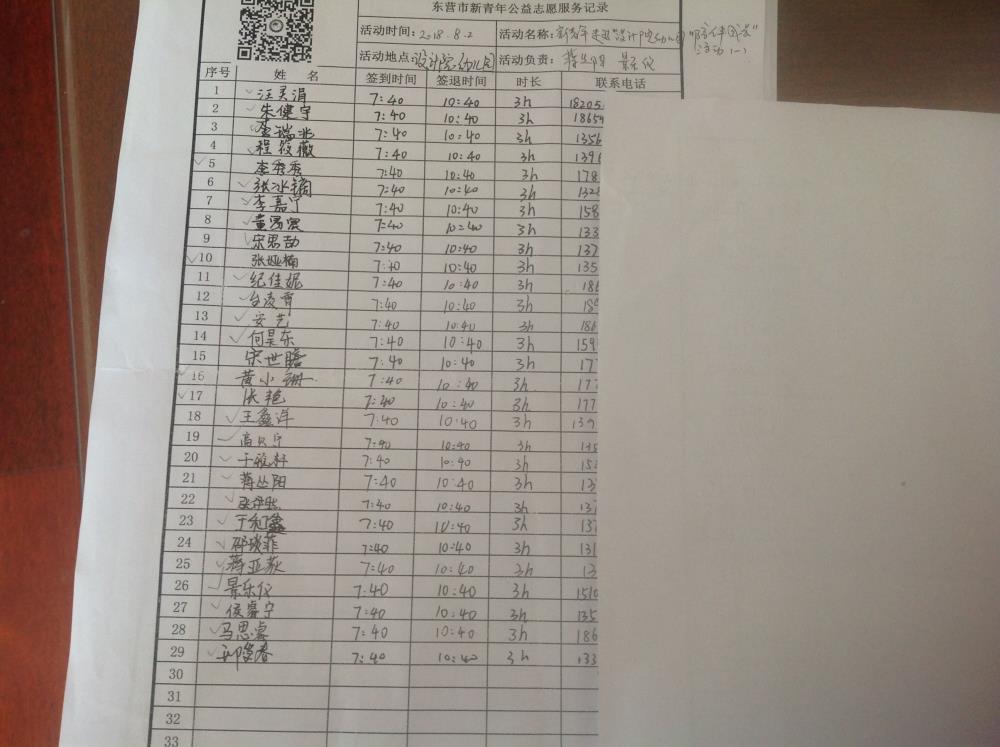 东营市新青年公益志愿服务记录
活动时间：2018.8.2 活动名称：
活动地点：设计院幼儿园 活动负责：蒋丛阳 景乐仪
序号 姓 名 签到时间 签退时间 时长 联系电话
1 汪灵涓 7:40 10:40 3h 18205
2 朱健宇 7:40 10:40 3h 1865
3 7:40 10:40 3h 1356
4 程筱薇 7:40 10:40 3h 1396
5 李秀秀 7:40 10:40 3h 178
6 张冰镝 7:40 10:40 3h 132
7 李嘉宁 7:40 10:40 3h 158
8 7:40 10:40 3h 133
9 宋思劼 7:40 10:40 3h 137
10 张娅楠 7:40 10:40 3h 135
11 纪佳妮 7:40 10:40 3h 186
12 台凌霄 7:40 10:40 3h
13 安艺 7:40 10:40 3h 186
14 何昊东 7:40 10:40 3h 159
15 宋世瞻 7:40 10:40 3h 17
16 黄小珊 7:40 10:40 3h 177
17 张艳 7:40 10:40 3h 177
18 王鑫洋 7:40 10:40 3h 139
19 7:40 10:40 3h 135
20 于雅轩 7:40 10:40 3h 15
21 蒋丛阳 7:40 10:40 3h 13
22 7:40 10:40 3h 137
23 7:40 10:40 3h 137
24 7:40 10:40 3h 131
25 蒋亚荻 7:40 10:40 3h 13
26 景乐仪 7:40 10:40 3h 1510
27 侯睿宁 7:40 10:40 3h 135
28 马思睿 7:40 10:40 3h 186
29 7:40 10:40 3h 133
30
31
32
33